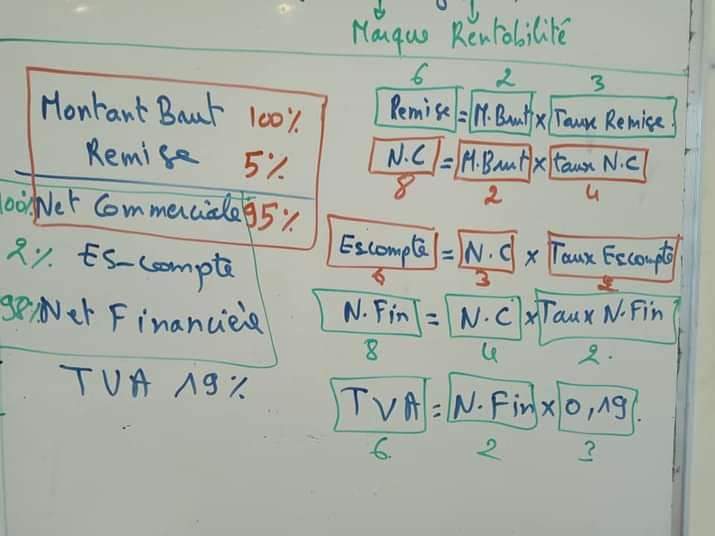 Marque Rentabilité
Montant Baut 100%
Remise 5%
100% Net Commerciale 95%
2% Es-compte
98% Net Financière
TVA 19%
6 2 3
Remise = M.Baut x Taux Remise.
N.C = M.Baut x taux N.C
8 2 4
Escompte = N.C x Taux Escompte
6 3 2
N.Fin = N.C x Taux N.Fin
8 4 2.
TVA = N.Fin x 0,19.
6 2 3